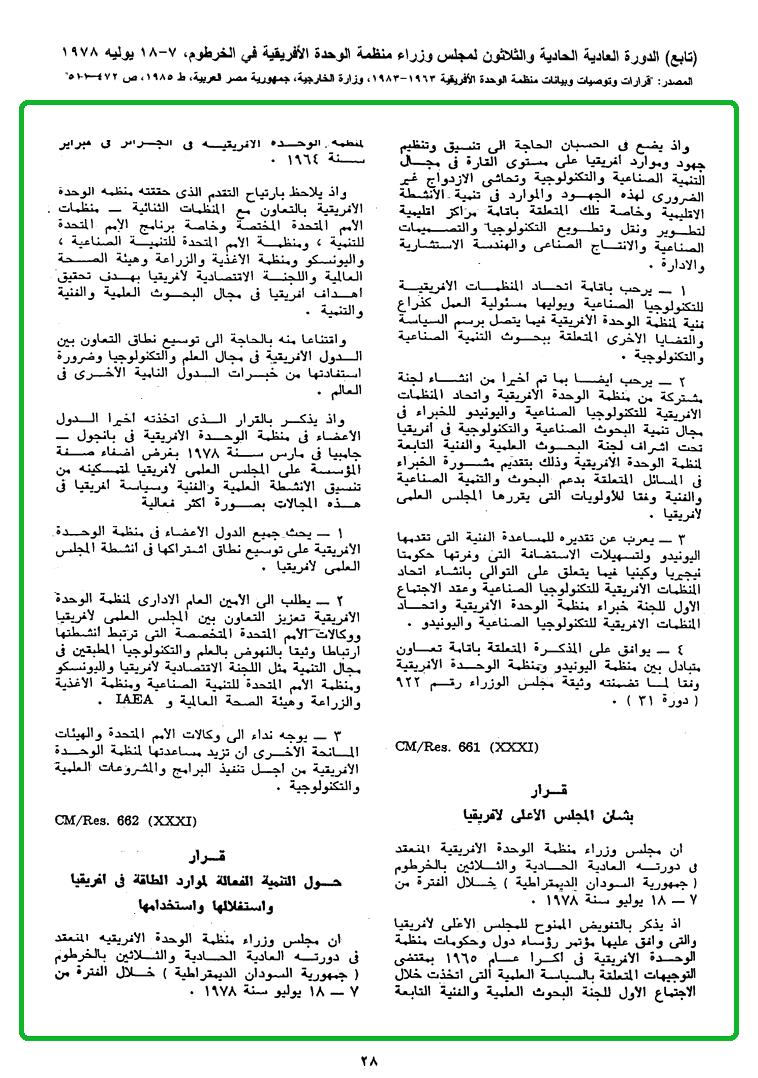 (تابع) الدورة العادية الحادية والثلاثون لمجلس وزراء منظمة الوحدة الأفريقية في الخرطوم، ٧-١٨ يوليه ١٩٧٨
المصدر: "قرارات وتوصيات وبيانات منظمة الوحدة الأفريقية ١٩٦٣-١٩٨٣، وزارة الخارجية، جمهورية مصر العربية، ط ١٩٨٥، ص ٤٧٢-٥٠١"
واذ يضع فى الحسبان الحاجة الى تنسيق وتنظيم
جهود وموارد أفريقيا على مستوى القارة فى مجال
التنمية الصناعية والتكنولوجية وتحاشى الازدواج غير
الضرورى لهذه الجهود والموارد فى تنمية الأنشطة
الاقليمية وخاصة تلك المتعلقة باقامة مراكز اقليمية
لتطوير ونقل وتطويع التكنولوجيا والتصميمات
الصناعية والانتاج الصناعى والهندسة الاستشارية
والادارة .
١ — يرحب باقامة اتحاد المنظمات الأفريقية
للتكنولوجيا الصناعية ويوليها مسئولية العمل كذراع
فنية لمنظمة الوحدة الأفريقية فيما يتصل برسم السياسة
والقضايا الأخرى المتعلقة ببحوث التنمية الصناعية
والتكنولوجية .
٢ — يرحب ايضا بما تم أخيرا من انشاء لجنة
مشتركة من منظمة الوحدة الأفريقية واتحاد المنظمات
الأفريقية للتكنولوجيا الصناعية واليونيدو للخبراء فى
مجال تنمية البحوث الصناعية والتكنولوجية فى أفريقيا
تحت اشراف لجنة البحوث العلمية والفنية التابعة
لمنظمة الوحدة الأفريقية وذلك بتقديم مشورة الخبراء
فى المسائل المتعلقة بدعم البحوث والتنمية الصناعية
والفنية وفقا للأولويات التى يقررها المجلس العلمى
لأفريقيا .
٣ — يعرب عن تقديره للمساعدة الفنية التى تقدمها
اليونيدو ولتسهيلات الاستضافة التى وفرتها حكومتا
نيجيريا وكينيا فيما يتعلق على التوالى بانشاء اتحاد
المنظمات الأفريقية للتكنولوجيا الصناعية وعقد الاجتماع
الأول للجنة خبراء منظمة الوحدة الأفريقية واتحاد
المنظمات الافريقية للتكنولوجيا الصناعية واليونيدو .
٤ — يوافق على المذكرة المتعلقة باقامة تعاون
متبادل بين منظمة اليونيدو ومنظمة الوحدة الأفريقية
وفقا لما تضمنته وثيقة مجلس الوزراء رقم ٩٢٢
( دورة ٣١ ) .
CM/Res. 661 (XXXI)
قرار
بشأن المجلس الأعلى لأفريقيا
ان مجلس وزراء منظمة الوحدة الأفريقية المنعقد
فى دورته العادية الحادية والثلاثين بالخرطوم
( جمهورية السودان الديمقراطية ) خلال الفترة من
٧ — ١٨ يوليو سنة ١٩٧٨ .
اذ يذكر بالتفويض الممنوح للمجلس الأعلى لأفريقيا
والتى وافق عليها مؤتمر رؤساء دول وحكومات منظمة
الوحدة الأفريقية فى أكرا عام ١٩٦٥ بمقتضى
التوجيهات المتعلقة بالسياسة العلمية التى اتخذت خلال
الاجتماع الأول للجنة البحوث العلمية والفنية التابعة
لمنظمة الوحدة الأفريقية فى الجزائر فى فبراير
سنة ١٩٦٤ .
واذ يلاحظ بارتياح التقدم الذى حققته منظمة الوحدة
الأفريقية بالتعاون مع المنظمات الثنائية — منظمات
الأمم المتحدة المختصة وخاصة برنامج الأمم المتحدة
للتنمية ، ومنظمة الأمم المتحدة للتنمية الصناعية ،
واليونسكو ومنظمة الأغذية والزراعة وهيئة الصحة
العالمية واللجنة الاقتصادية لأفريقيا بهدف تحقيق
أهداف أفريقيا فى مجال البحوث العلمية والفنية
والتنمية .
واقتناعا منه بالحاجة الى توسيع نطاق التعاون بين
الدول الأفريقية فى مجال العلم والتكنولوجيا وضرورة
استفادتها من خبرات الدول النامية الأخرى فى
العالم .
واذ يذكر بالقرار الذى اتخذته أخيرا الدول
الأعضاء فى منظمة الوحدة الأفريقية فى بانجول —
جامبيا فى مارس سنة ١٩٧٨ بغرض اضفاء صفة
المؤسسة على المجلس العلمى لأفريقيا لتمكينه من
تنسيق الأنشطة العلمية والفنية وسياسة أفريقيا فى
هذه المجالات بصورة أكثر فعالية
١ — يحث جميع الدول الأعضاء فى منظمة الوحدة
الأفريقية على توسيع نطاق اشتراكها فى أنشطة المجلس
العلمى لأفريقيا .
٢ — يطلب الى الأمين العام الادارى لمنظمة الوحدة
الأفريقية تعزيز التعاون بين المجلس العلمى لأفريقيا
ووكالات الأمم المتحدة المتخصصة التى ترتبط أنشطتها
ارتباطا وثيقا بالنهوض بالعلم والتكنولوجيا المطبقين فى
مجال التنمية مثل اللجنة الاقتصادية لأفريقيا واليونسكو
ومنظمة الأمم المتحدة للتنمية الصناعية ومنظمة الأغذية
والزراعة وهيئة الصحة العالمية و IAEA .
٣ — يوجه نداء الى وكالات الأمم المتحدة والهيئات
المانحة الأخرى أن تزيد مساعدتها لمنظمة الوحدة
الأفريقية من أجل تنفيذ البرامج والمشروعات العلمية
والتكنولوجية .
CM/Res. 662 (XXXI)
قرار
حول التنمية الفعالة لموارد الطاقة فى أفريقيا
واستغلالها واستخدامها
ان مجلس وزراء منظمة الوحدة الأفريقيه المنعقد
فى دورته العادية الحادية والثلاثين بالخرطوم
( جمهورية السودان الديمقراطية ) خلال الفترة من
٧ — ١٨ يوليو سنة ١٩٧٨ .
٢٨